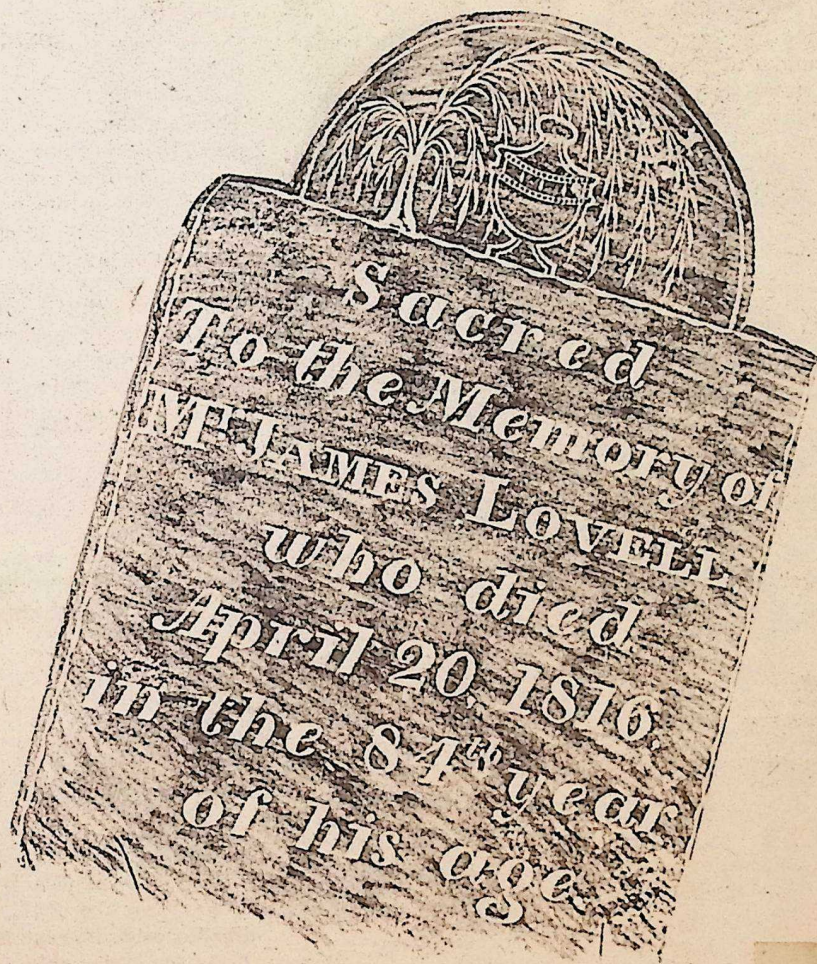 Sacred
To the Memory of
Mr. JAMES LOVELL
who died
April 20, 1816.
in the 84th year
of his age.